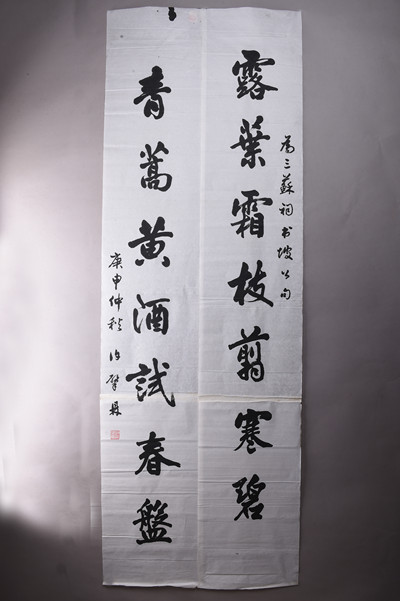 為三蘇祠书坡公句
露葉霜枝翦寒碧
青蒿黄酒試春盤
庚申仲秋许肇